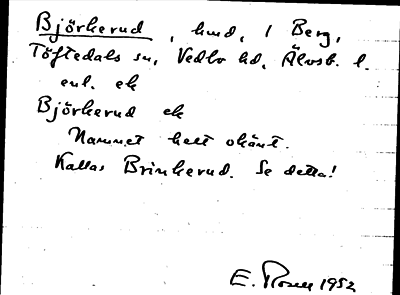 Björkerud, hmd, 1 Berg,
Töftedals sn, Vedbo hd, Älvsb. l.
enl. ek
Björkerud ek
Namnet helt okänt.
Kallas Brinkerud. Se detta!
E. Rosell 1952